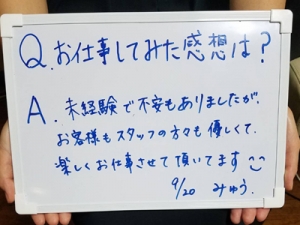 Q.お仕事してみた感想は?
A.未経験で不安もありましたが、
お客様もスタッフの方々も優しくて、
楽しくお仕事させて頂いてます
9/20 みゅう.